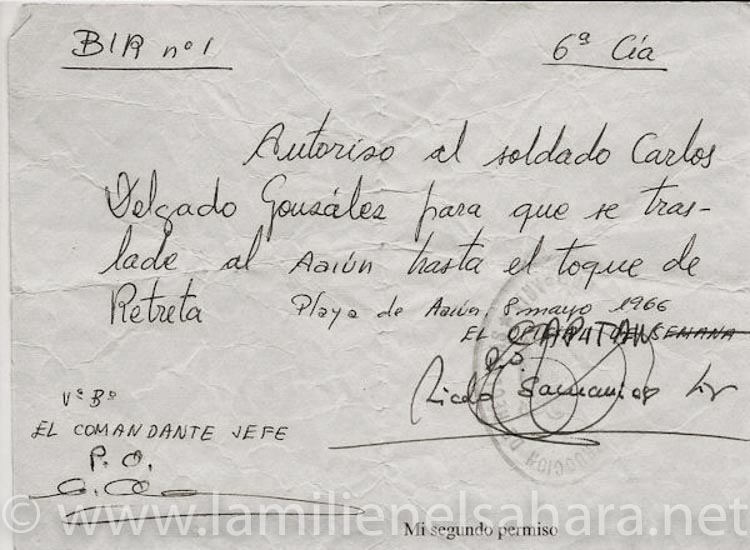 BIR nº 1
6ª Cía
Autoriso al soldado Carlos
Delgado Gonsález para que se tras-
lade al Aaiún hasta el toque de
Retreta
Playa de Aaiún, 8 mayo 1966
EL CAPITAN SEMANA
P.O.
Vº Bº
EL COMANDANTE JEFE
P. O.
© www.lamilienelsahara.net
Mi segundo permiso